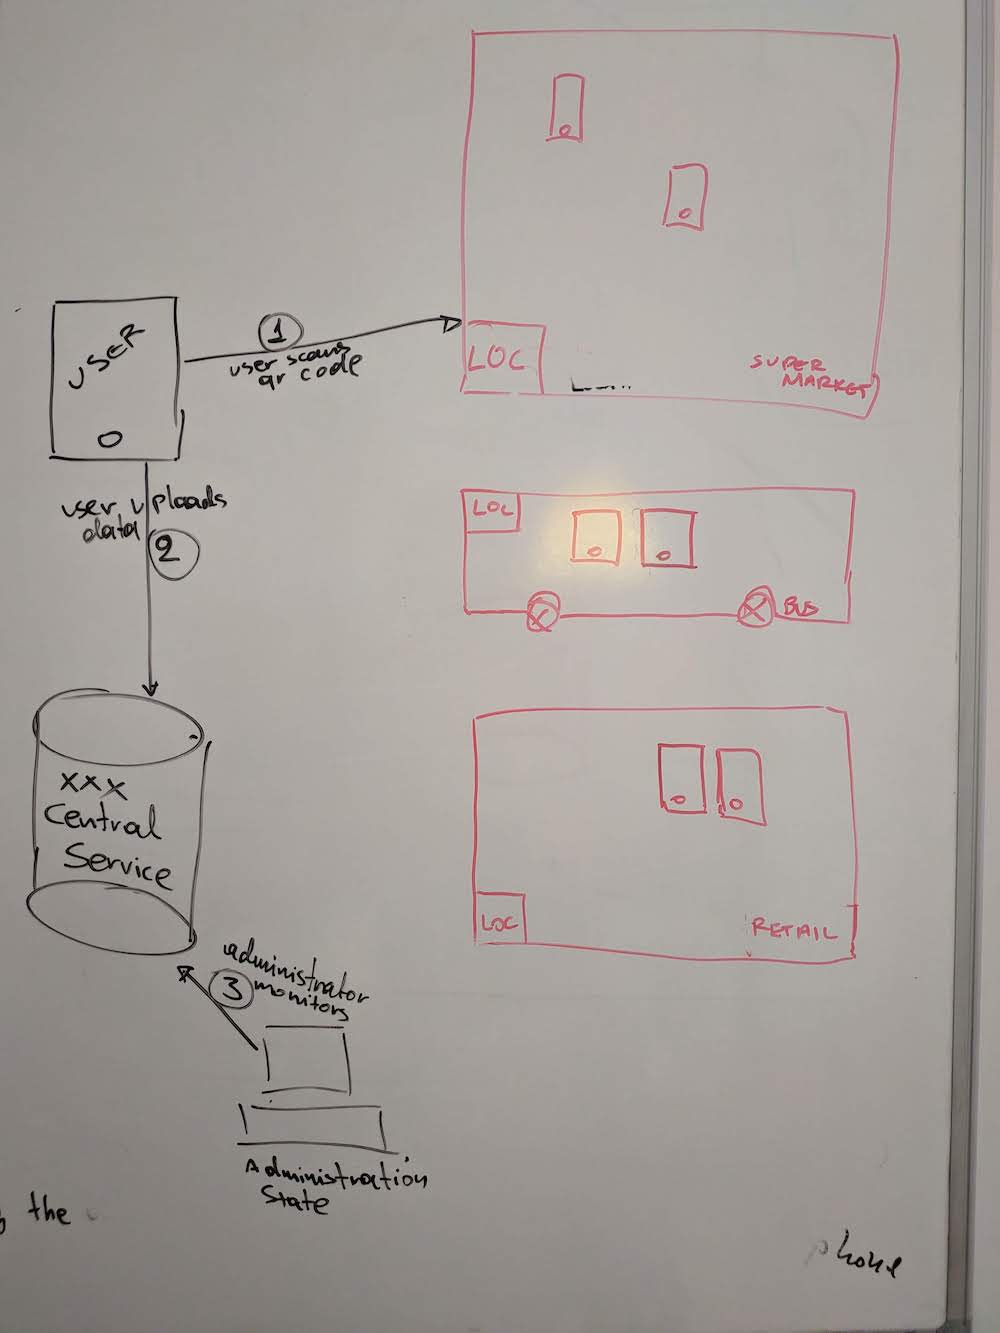 USER
1
user scans
qr code
LOC
SUPER
MARKET
user uploads
data
2
LOC
BUS
XXX
Central
Service
LOC
RETAIL
administrator
3 monitors
Administration
State
the
phone